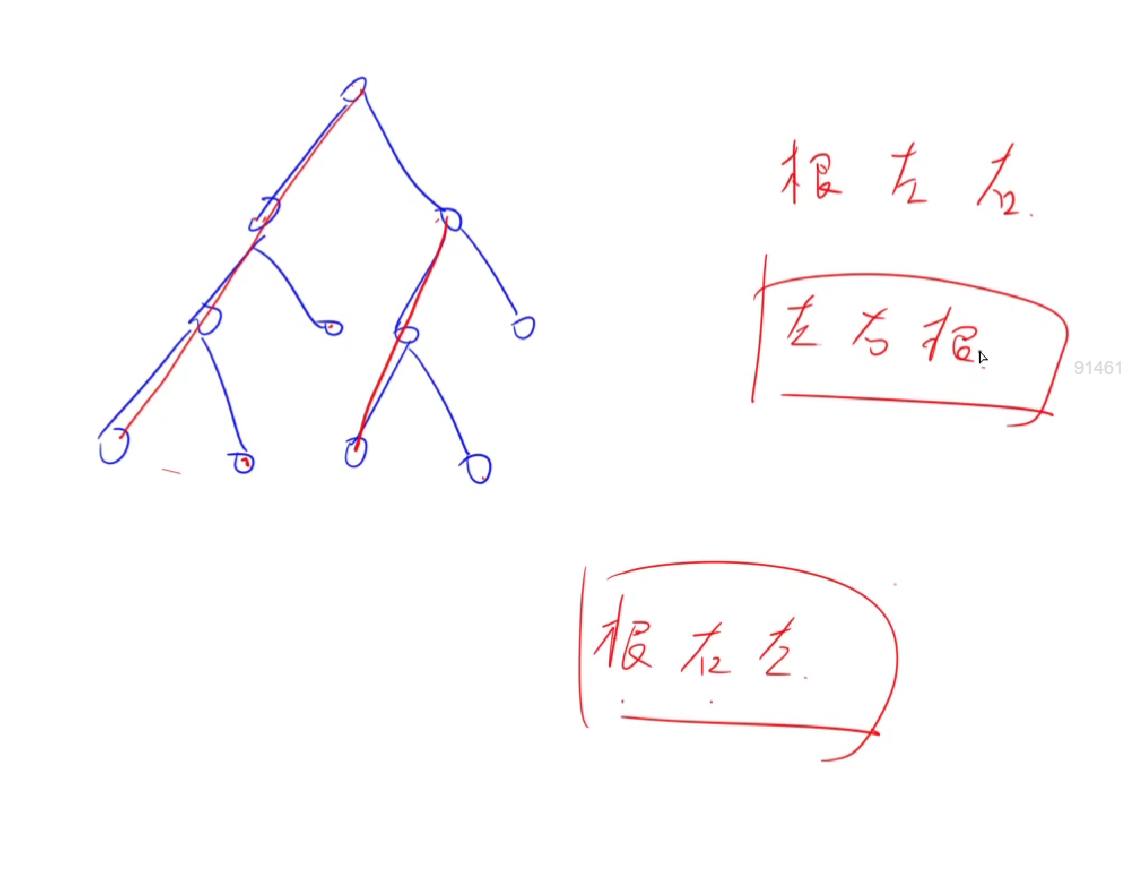 根 左 右.
左 右 根.
91461
根 右 左.